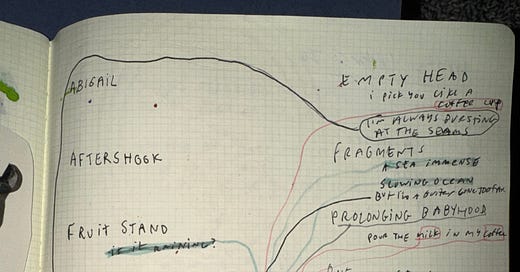 ABIGAIL
AFTERSHOOK
FRUIT STAND
is it raining?
EMPTY HEAD
i pick you like a
coffee cup
I'm always bursting
at the seams
FRAGMENTS
a sea immense
slowing ocean
PROLONGING BABYHOOD
pour the milk in my coffee